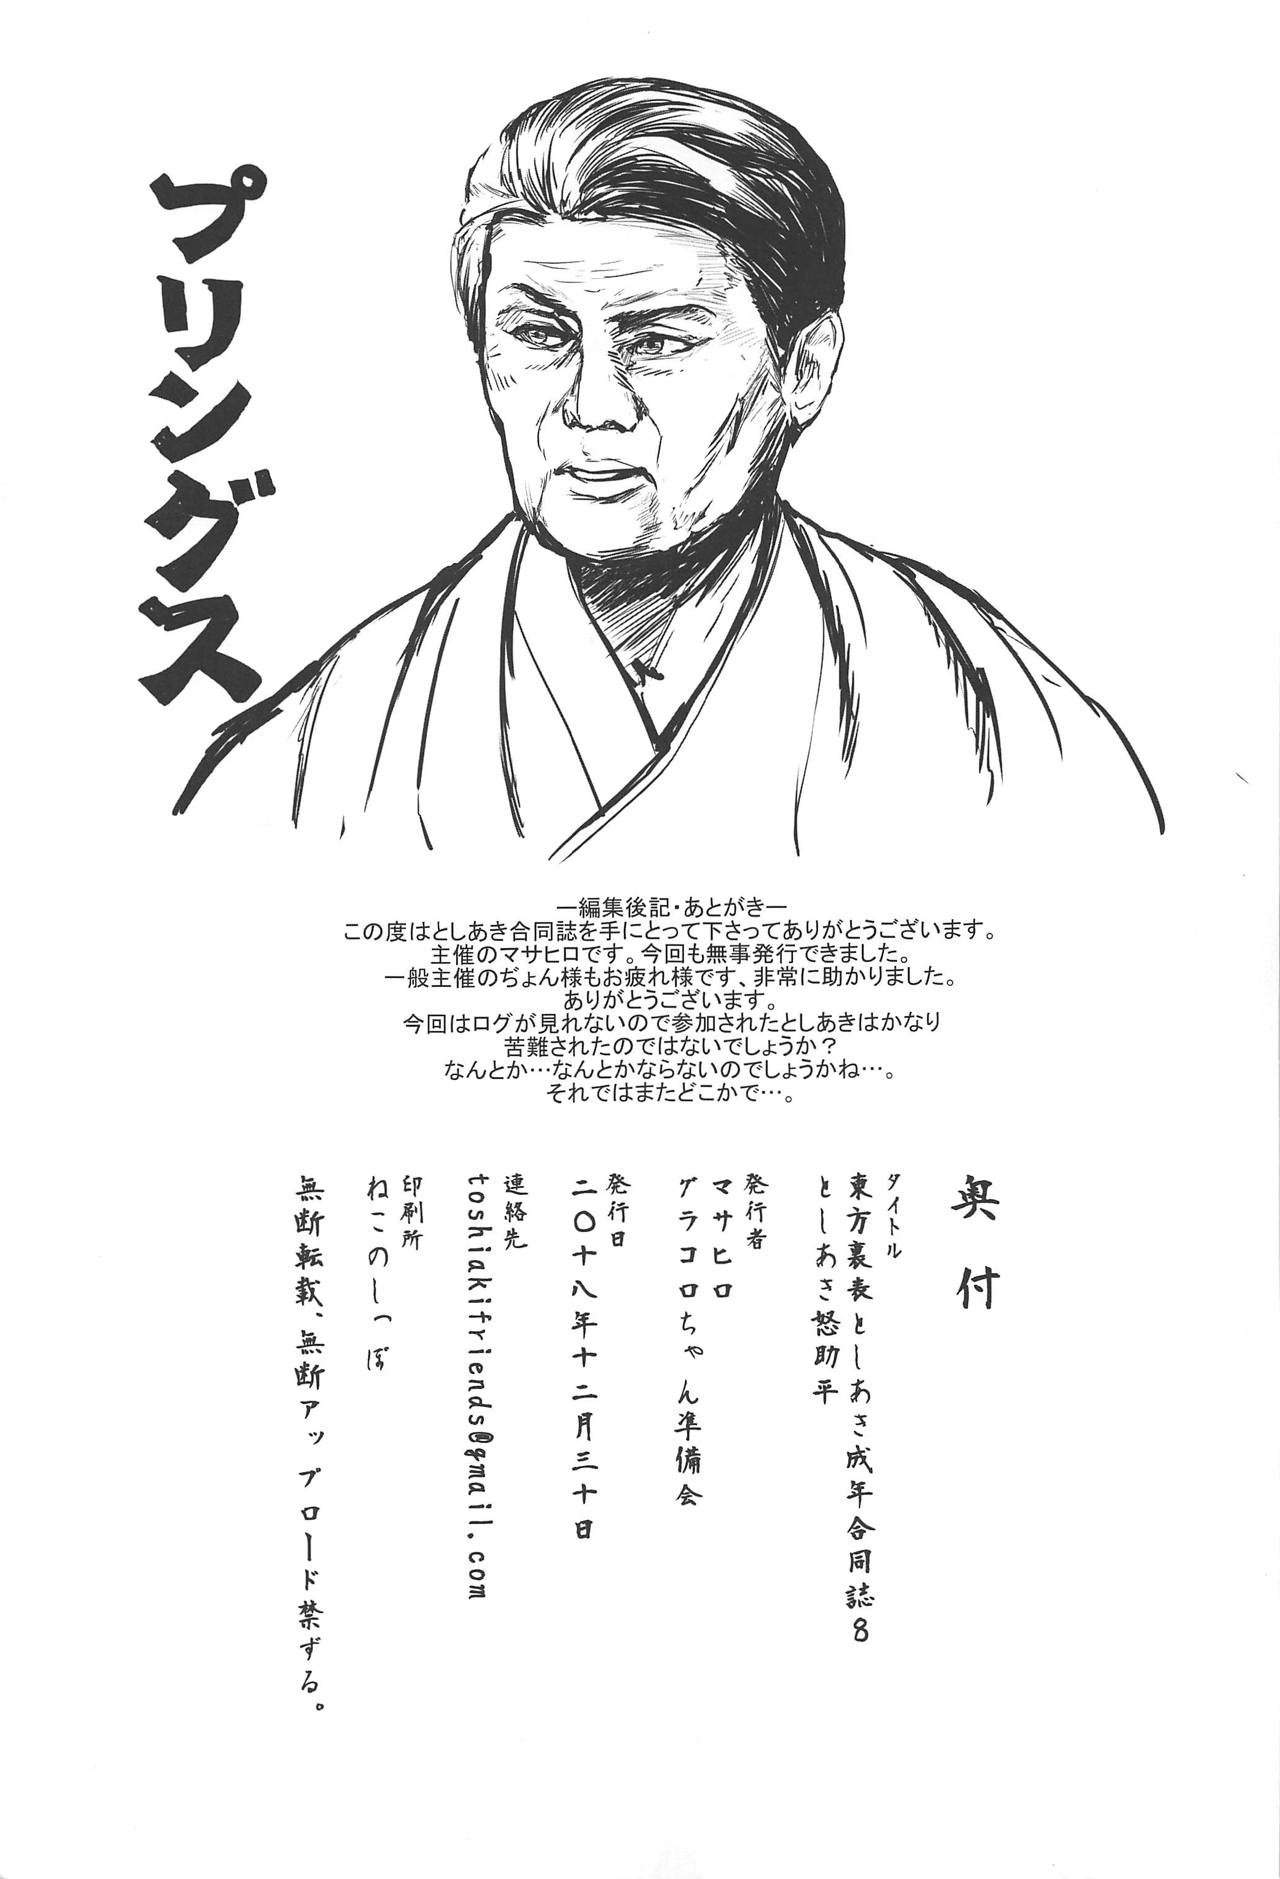 プリングス
―編集後記・あとがき―
この度はとしあき合同誌を手にとって下さってありがとうございます。
主催のマサヒロです。今回も無事発行できました。
一般主催のぢょん様もお疲れ様です、非常に助かりました。
ありがとうございます。
今回はログが見れないので参加されたとしあきはかなり
苦難されたのではないでしょうか？
なんとか…なんとかならないのでしょうかね…。
それではまたどこかで…。
奥付
タイトル
東方裏表としあき成年合同誌８
としあき怒助平
発行者
マサヒロ
グラコロちゃん準備会
発行日
二〇十八年十二月三十日
連絡先
toshiakifriends@gmail.com
印刷所
ねこのしっぽ
無断転載、無断アップロード禁ずる。